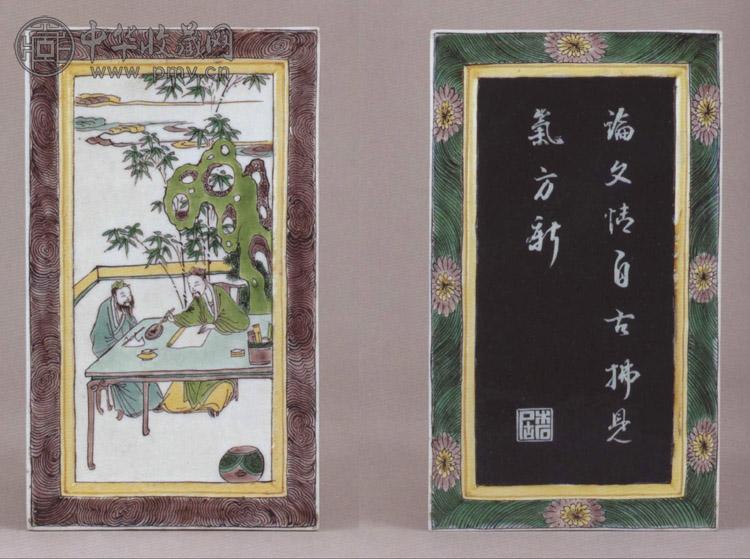 中华收藏网
www.pmv.cn
論文情自古拂見
氣方新
木石居